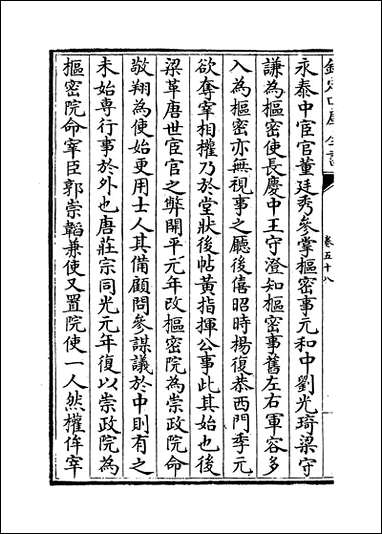 欽定四庫全書
卷五十八
永泰中宦官董廷秀參掌樞密事元和中劉光琦梁守
謙為樞密使長慶中王守澄知樞密事舊左右軍容多
入為樞密亦無視事之廳後僖昭時楊復恭西門季元
欲奪宰相權乃於堂狀後帖黃指揮公事此其始也後
梁革唐世宦官之弊開平元年改樞密院為崇政院命
敬翔為使始更用士人其備顧問參謀議於中則有之
未始專行事於外也唐莊宗同光元年復以崇政院為
樞密院命宰臣郭崇韜兼使又置院使一人然權侔宰